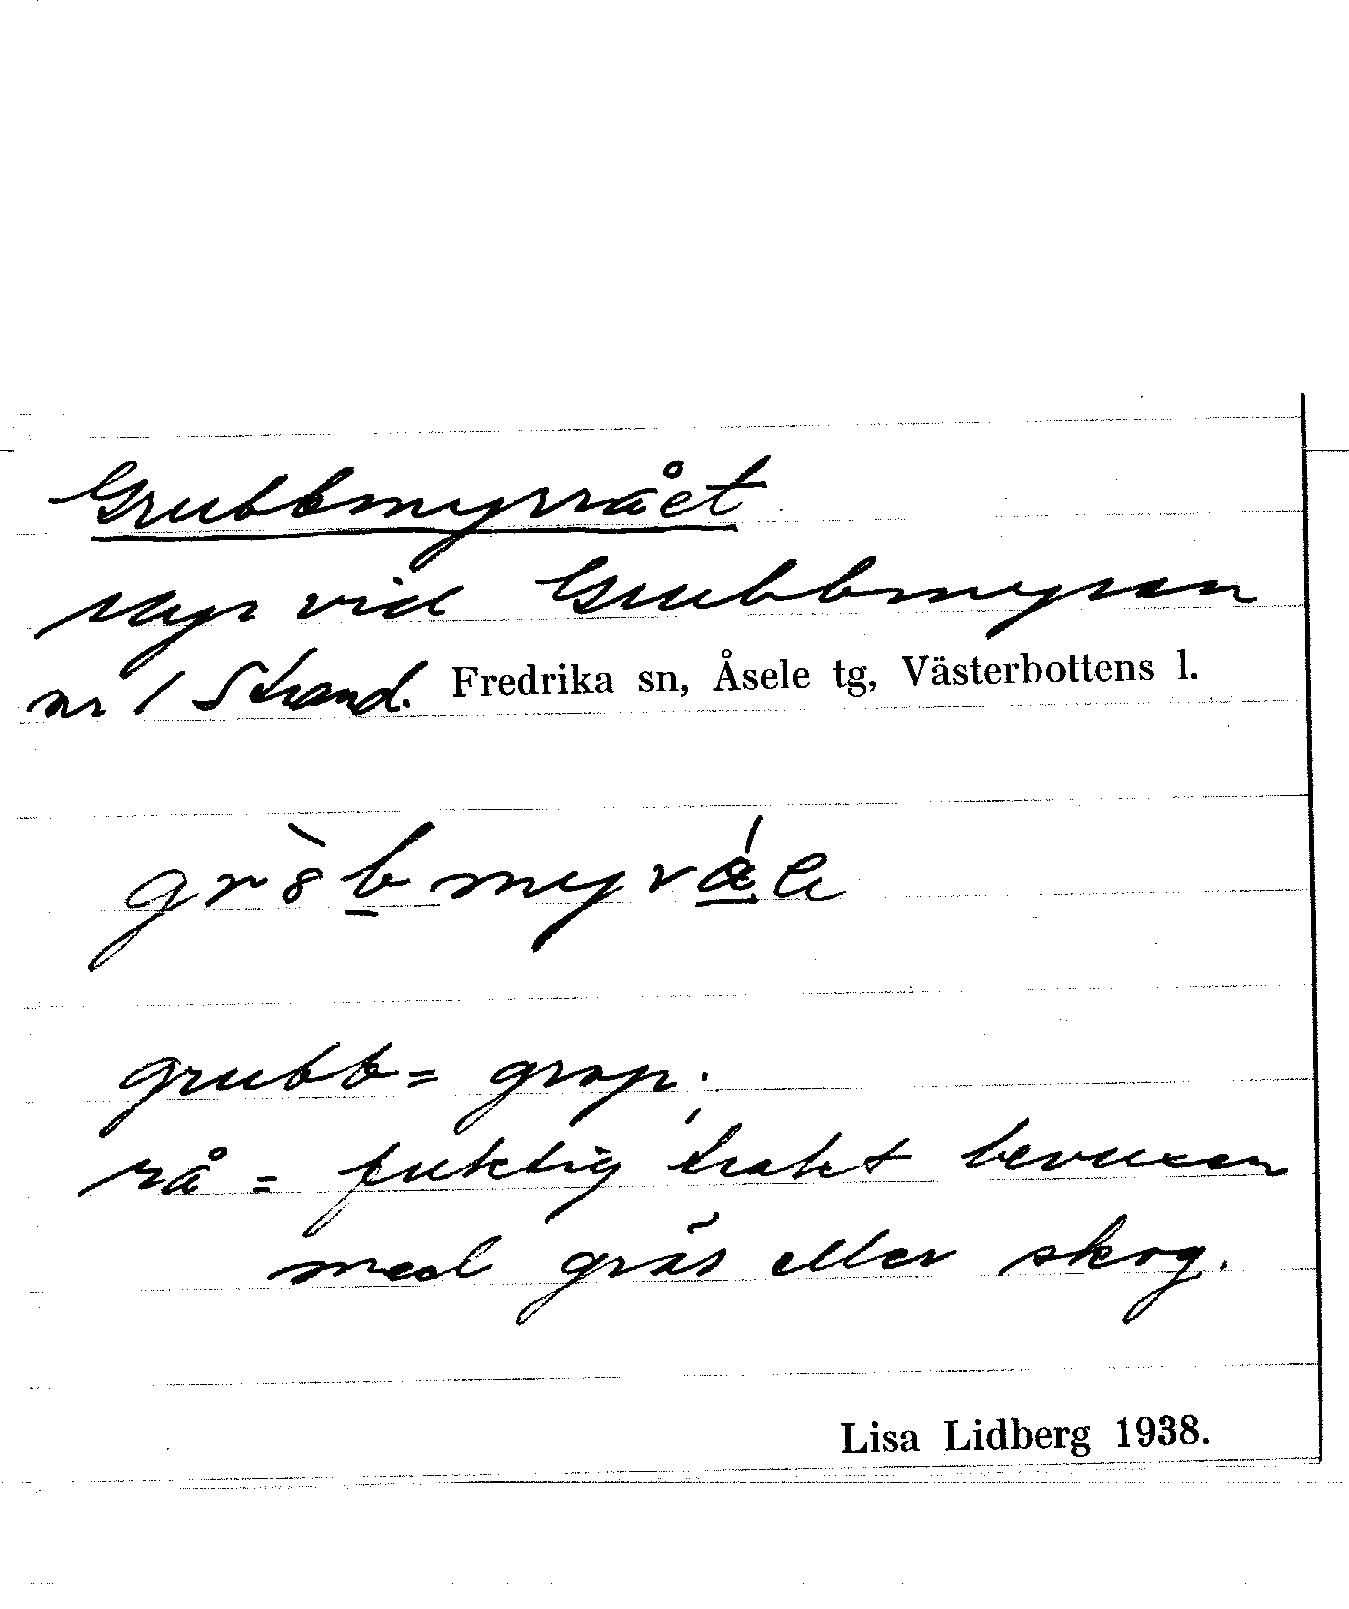 Grubbmyrrået
myr vid Grubbmyran
nr 1 Strand. Fredrika sn, Åsele tg, Västerbottens l.
grubb = grop.
rå = fuktig trakt bevuxen
med gräs eller skog.
Lisa Lidberg 1938.